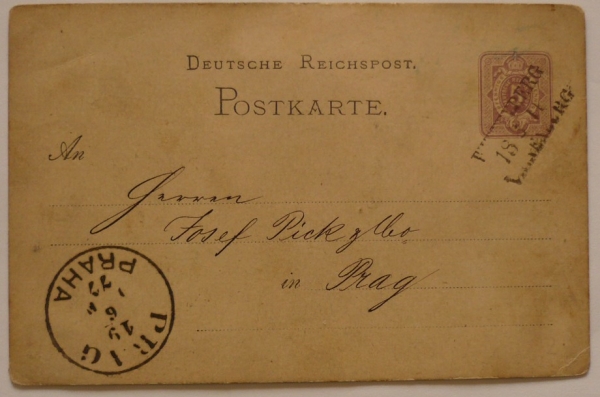 DEUTSCHE REICHSPOST.
POSTKARTE.
An
Herren
Josef Pick & Co
in Prag
PRAG
PRAHA